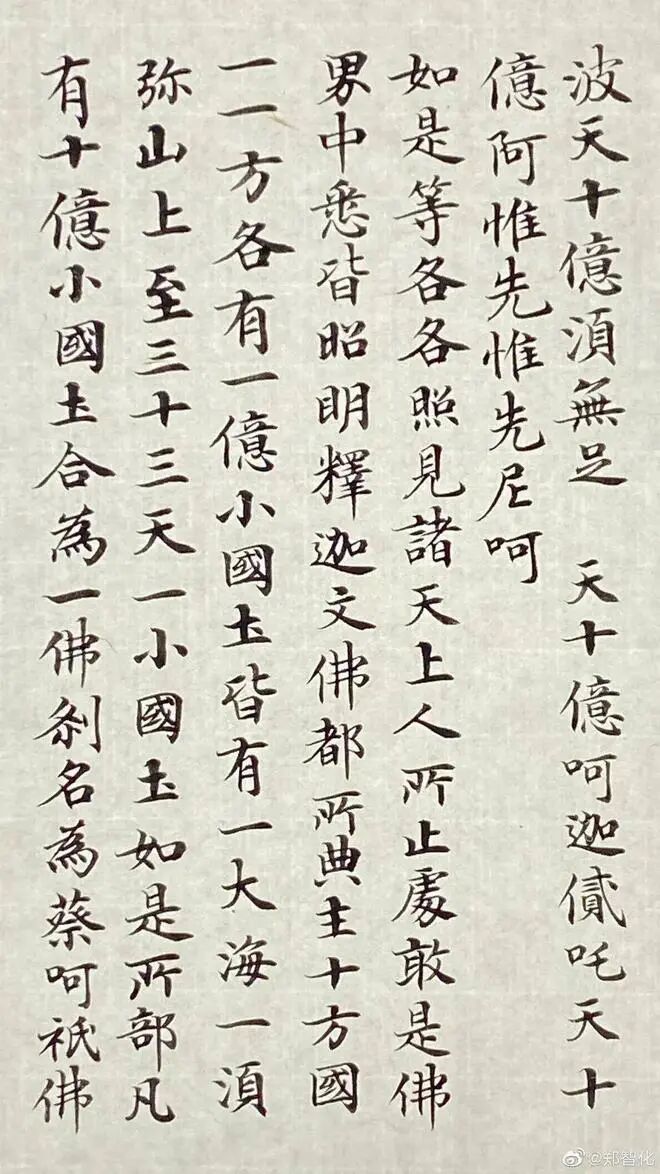 波天十億湏無足　天十億呵迦貳吒天十
億阿惟先惟先尼呵
如是等各各照見諸天上人所止處敢是佛
界中悉皆昭明釋迦文佛都所典主十方國
一一方各有一億小國土皆有一大海一湏
弥山上至三十三天一小國土如是所部凡
有十億小國土合為一佛剎名為蔡呵祇佛
@郑智化